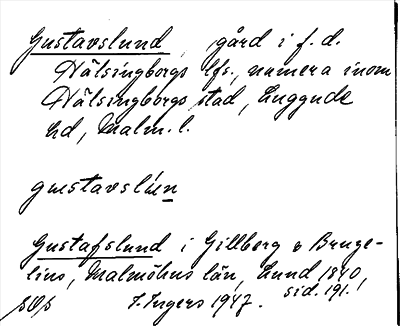 Gustavslund, gård i f. d.
Hälsingborgs lfs., numera inom
Hälsingborgs stad, Luggude
hd, Malm. l.
gustavslun
Gustafslund i Gillberg o Bruze-
lius, Malmöhus län, Lund 1840,
sid. 191.
I. Ingers 1947.